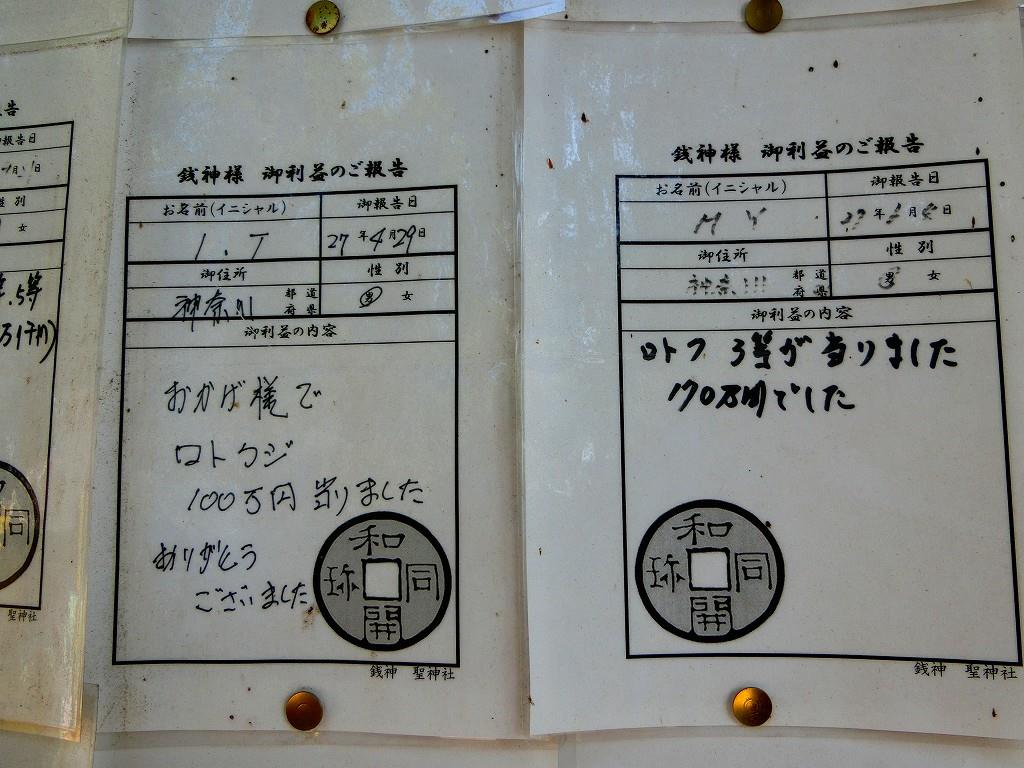 告
報告日
性別
女
5等
銭神様 御利益のご報告
お名前(イニシャル) 御報告日
I.T 27年4月29日
御住所 性別
神奈川 都道府県 男 女
御利益の内容
おかげ様で
ロトクジ
100万円当りました
ありがとう
ございました
和同開珎
銭神 聖神社
銭神様 御利益のご報告
お名前(イニシャル) 御報告日
M Y 年 月 日
御住所 性別
神奈川 都道府県 男 女
御利益の内容
ロト7 3等が当りました
170万円でした
和同開珎
銭神 聖神社
同
聖神社